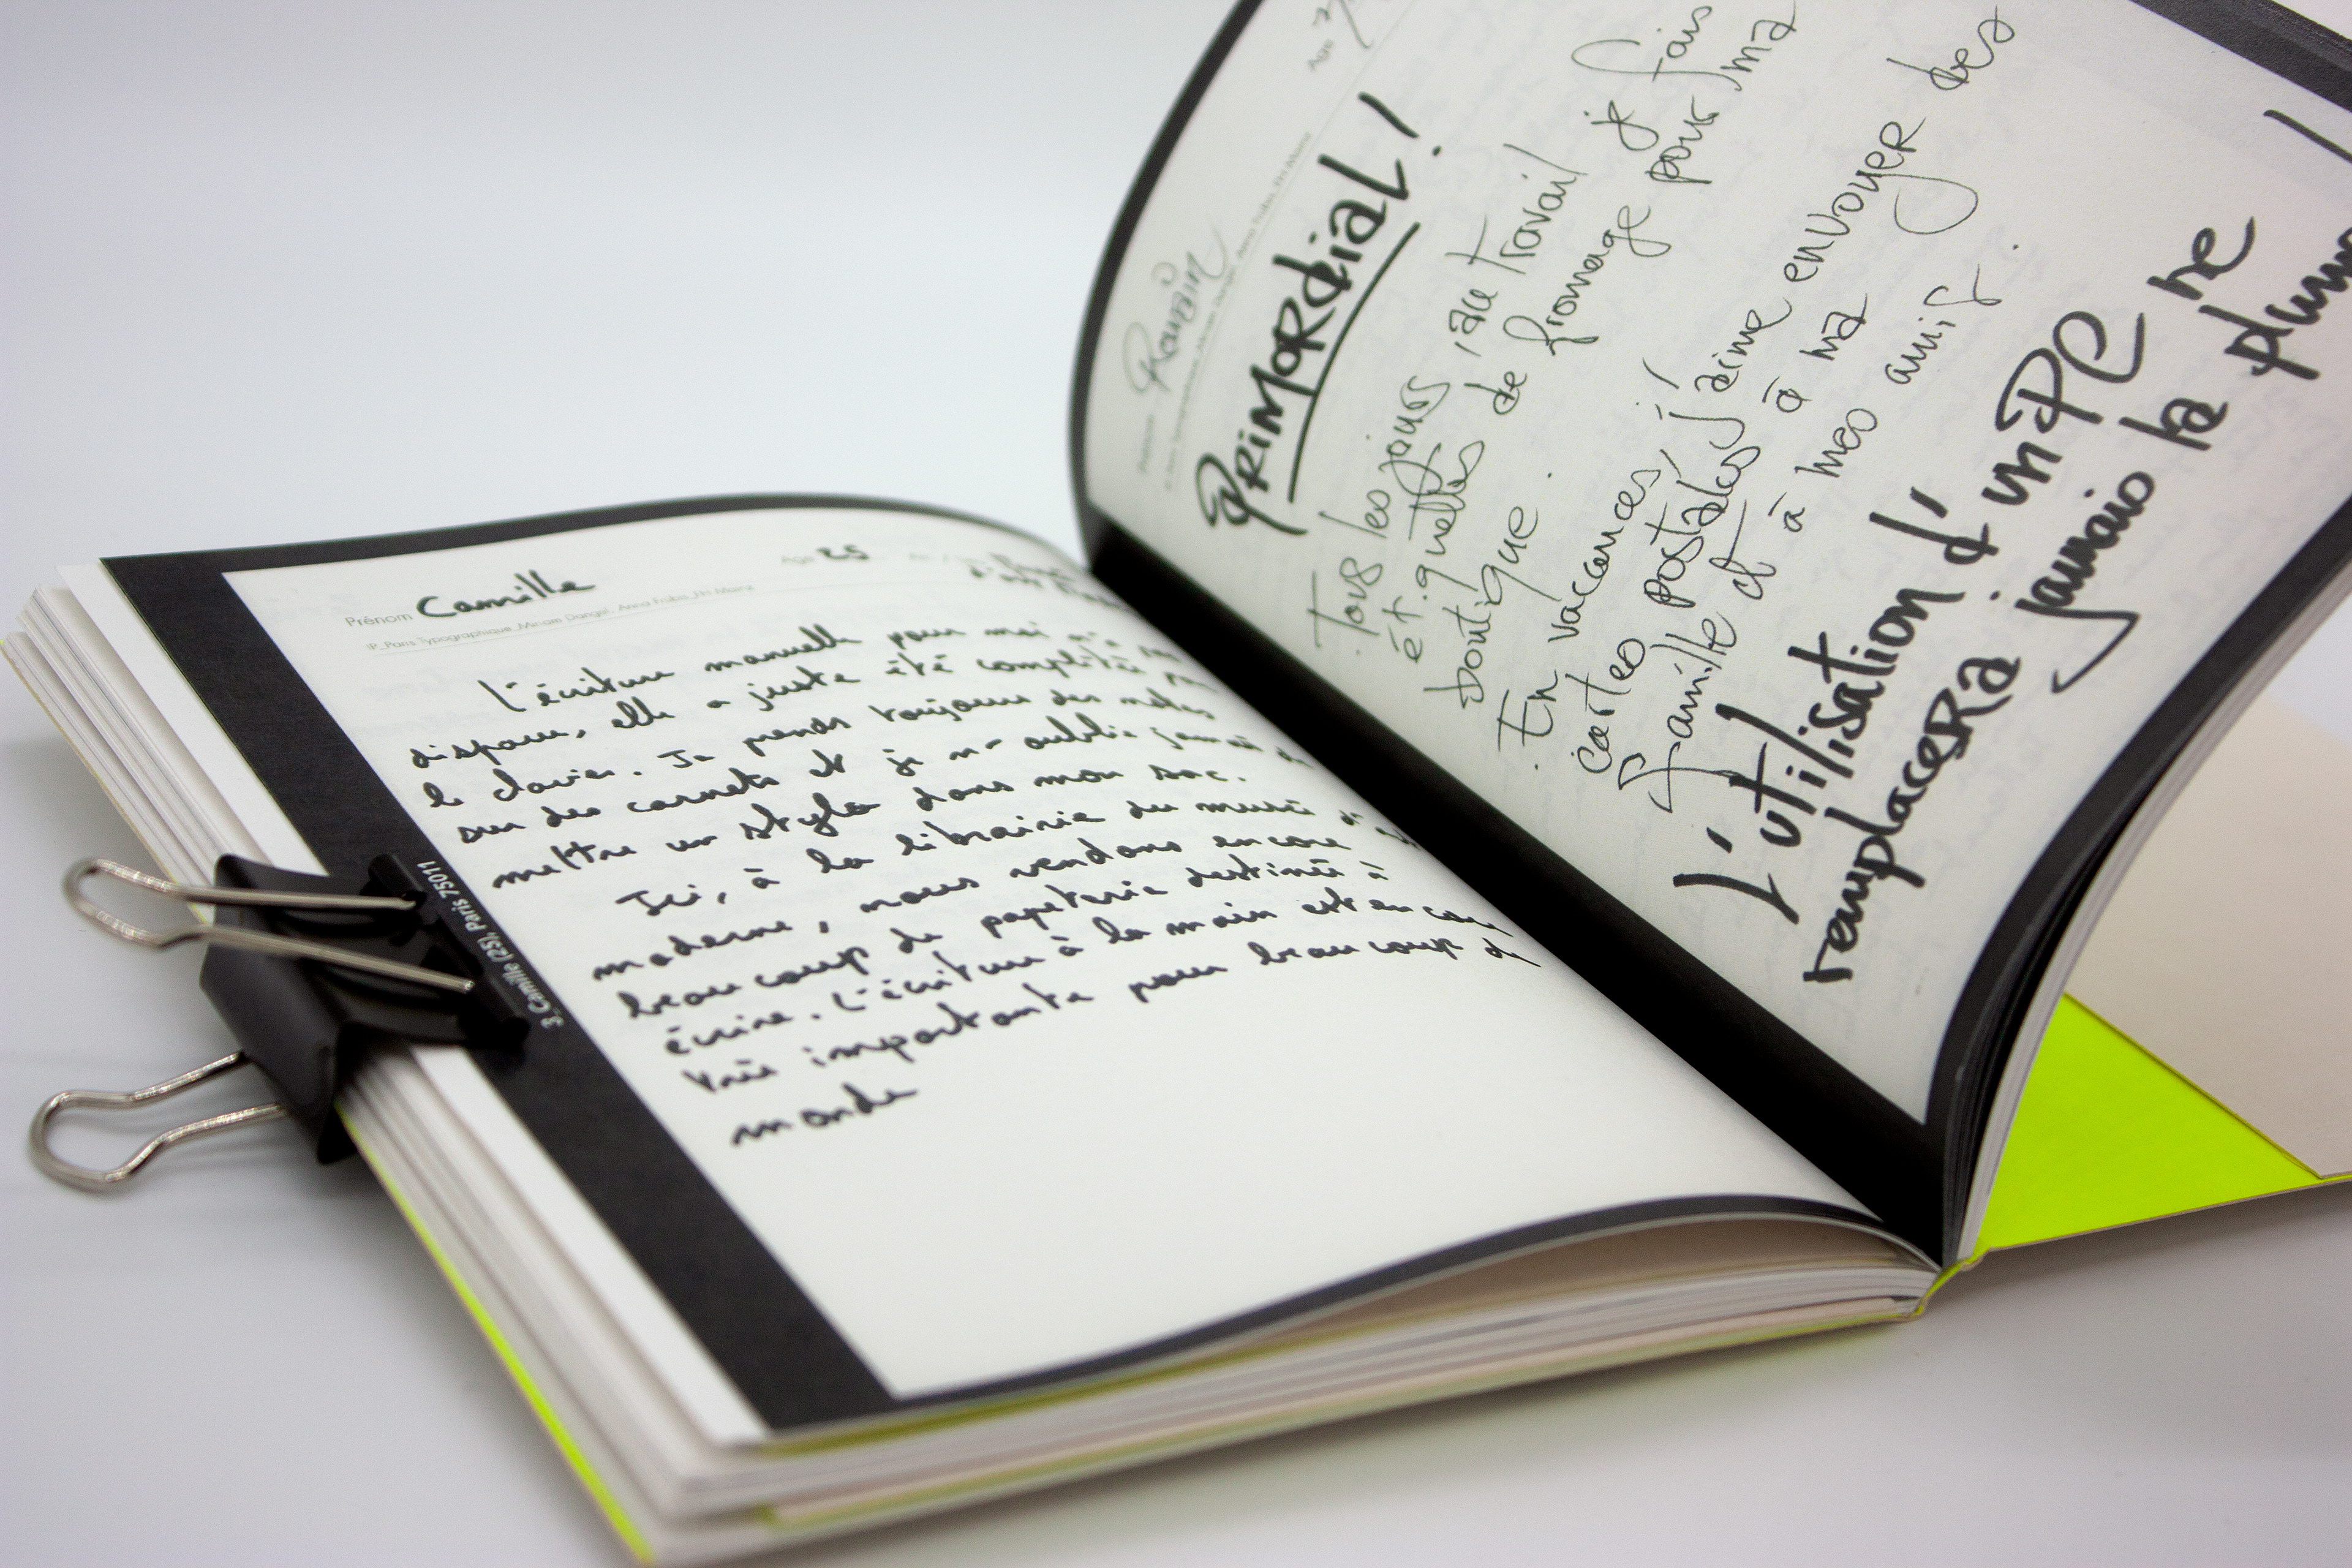 Prénom Camille Age 25
IP_Paris Typographique_Miriam Dangel, Anna Frabis_FH Mainz
L'écriture manuelle pour moi n'a
disparu, elle a juste été complétée
le clavier. Je prends toujours des notes
sur des carnets et je ne oublie jamais de
mettre un stylo dans mon sac.
Ici, à la librairie du musée d'
moderne, nous vendons encore
beaucoup de papeterie destinée à
écrire. L'écriture à la main est encore
très importante pour beaucoup de
monde
3_Camille (25), Paris 75011
Prénom Romain Age
PRIMORDIAL!
Tous les jours, au travail je fais
étiquettes de fromage pour ma
boutique.
En vaccances, j'aime envoyer des
cartes postales à ma
famille et à mes amis.
L'utilisation d'un PC ne
remplacera jamais la